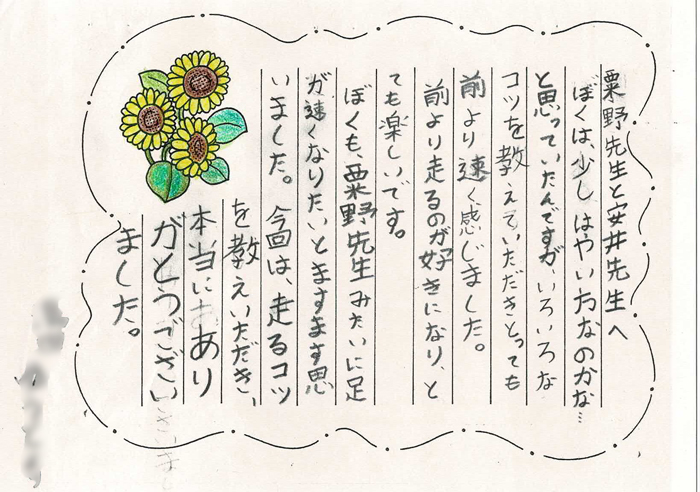 粟野先生と安井先生へ
ぼくは、少しはやい方なのかな…
と思っていたんですが、いろいろな
コツを教えていただきとっても
前より速く感じました。
前より走るのが好きになり、と
ても楽しいです。
ぼくも、粟野先生みたいに足
が速くなりたいとますます思
いました。今回は、走るコツ
を教えいただき、
本当にあり
がとうござい
ました。